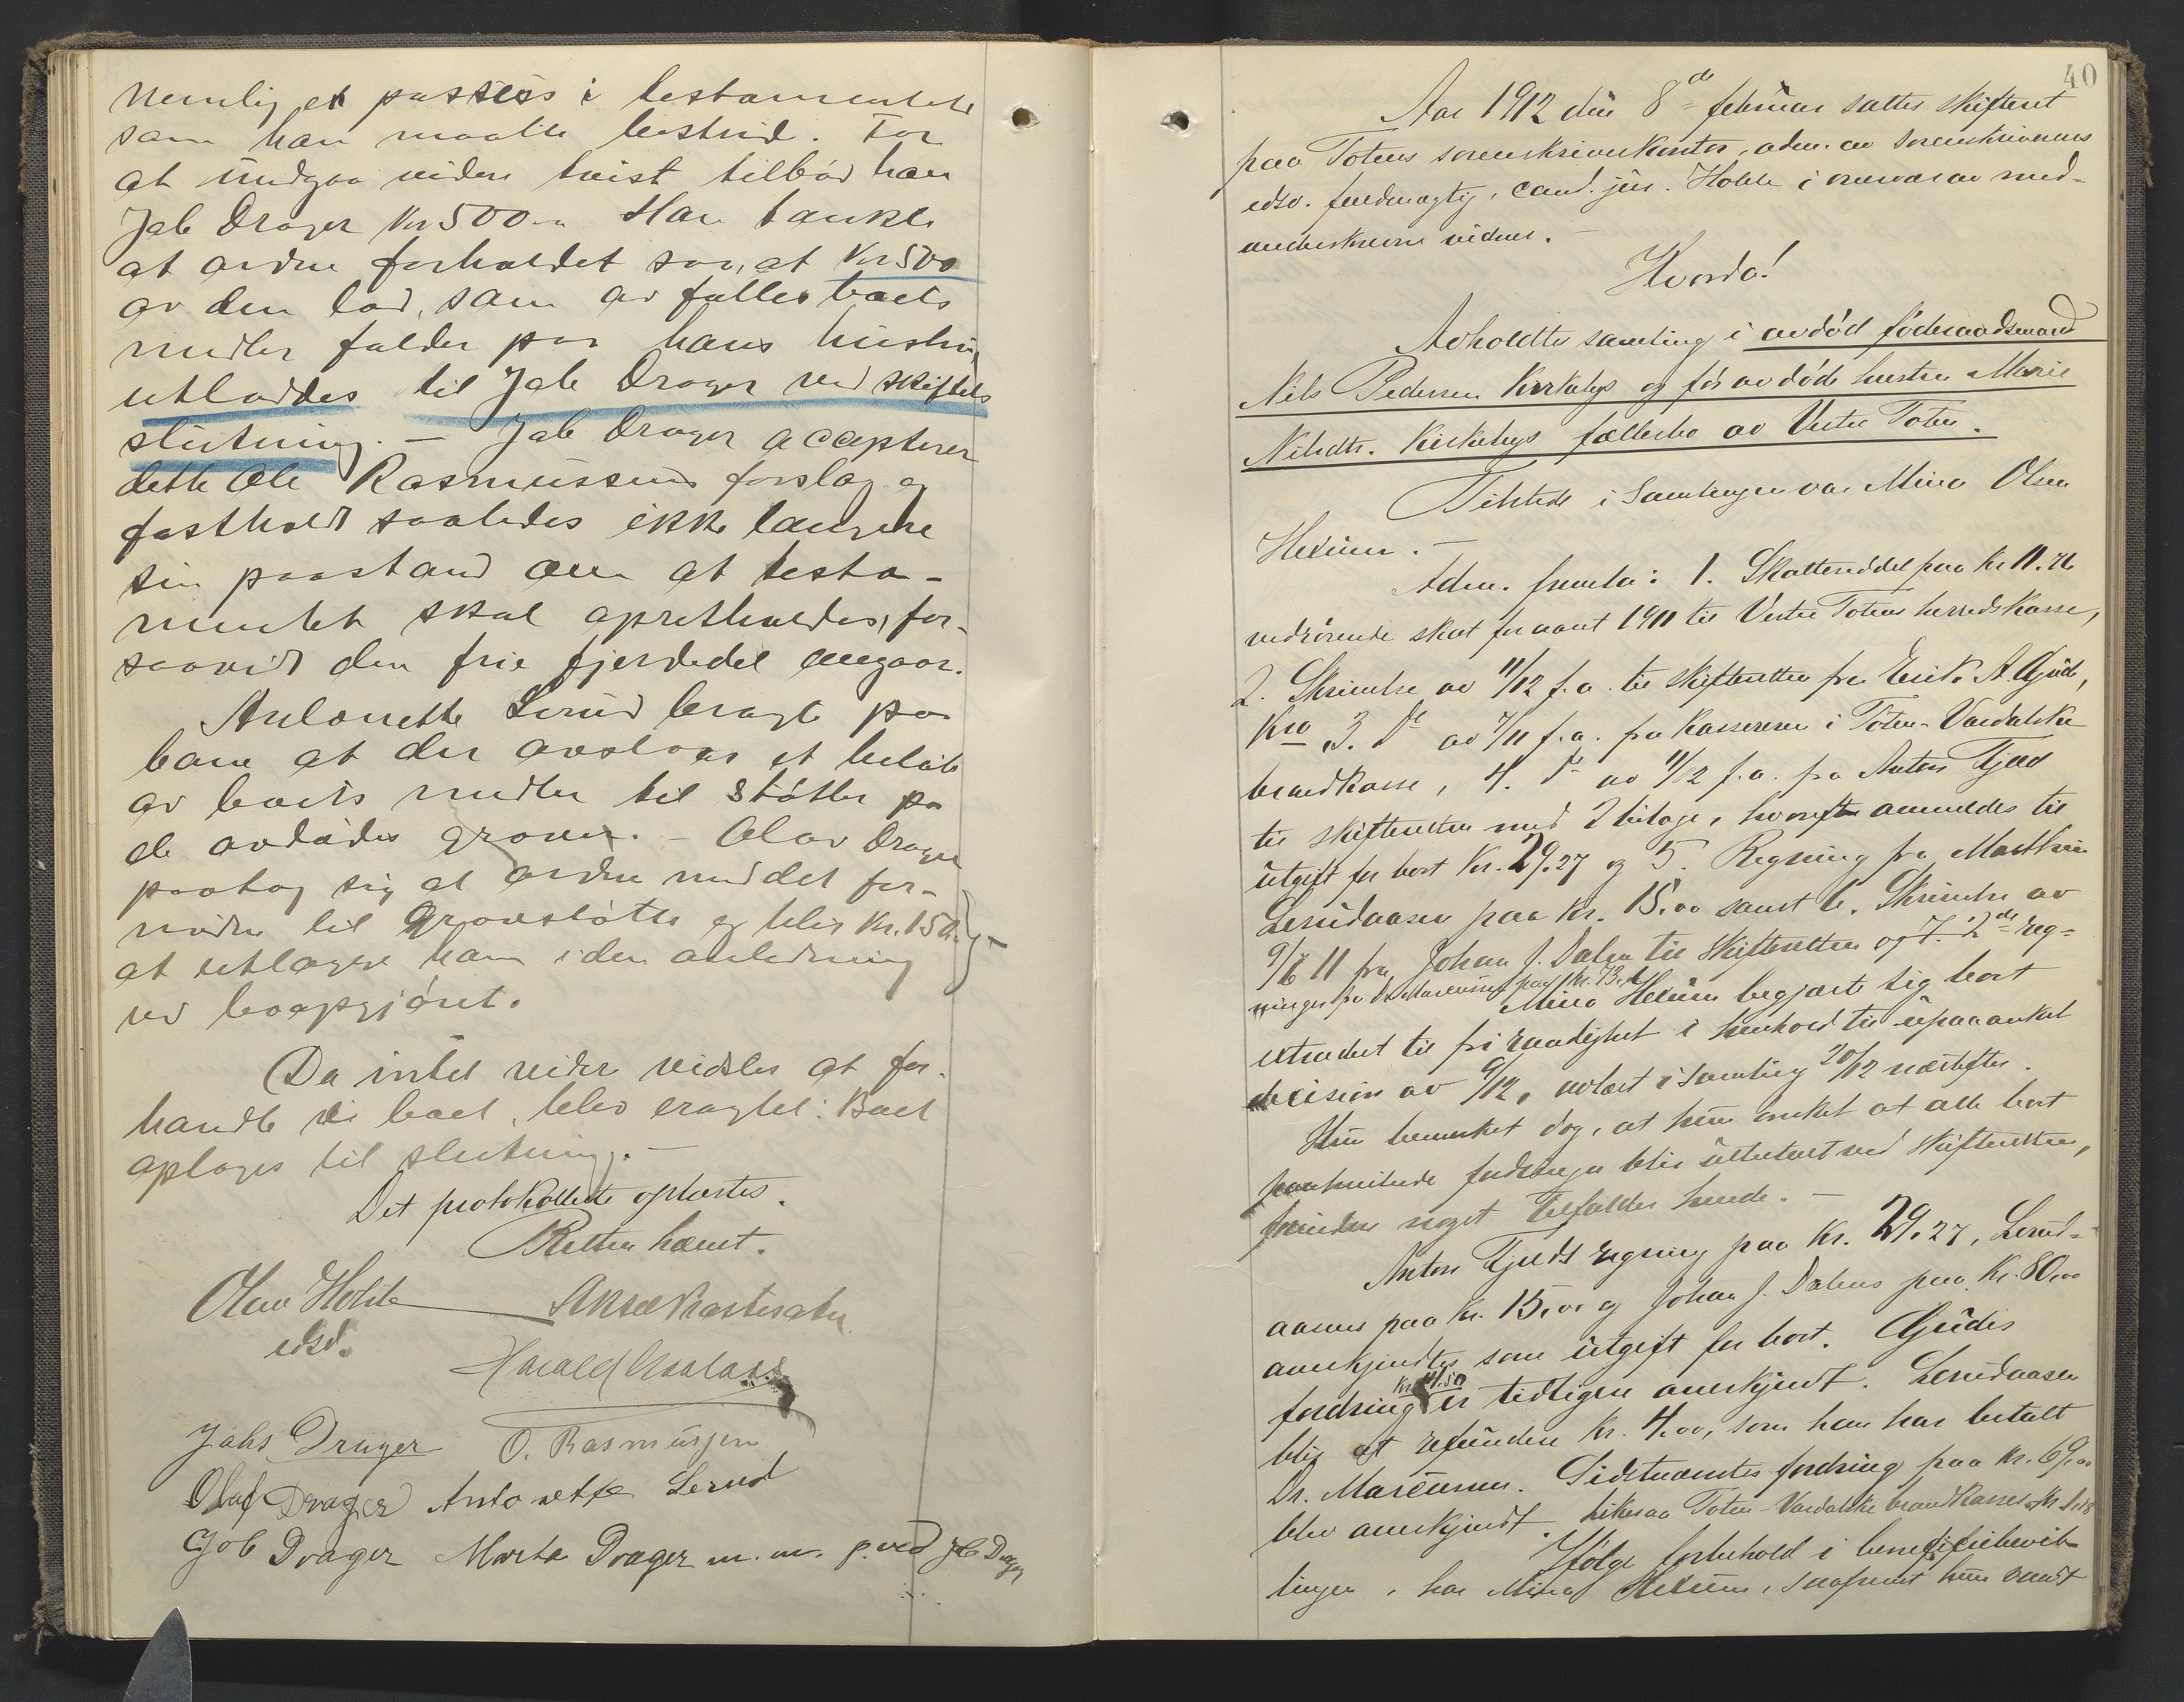 nemlig et passus i testamentet
som han maatte bestrid. For
at undgaa viden tvist tilbød han
Job Drager Kr 500.- Han tænkte
at ordne forholdet saa, at Kr 500
av den lod, som av fælles boets
midler falder paa hans hustru
utloddes til Job Drager ved skiftets
slutning. — Job Drager accepterer
dette Ole Rasmussens forslag og
fastholdt saaledes ikke længere
sin paastand om at testa-
mentet skal opretholdes, for-
saavidt den frie fjerdedel angaar.
Antonette Lerud bragte paa
bane at der avsloges et beløb
av boets midler til støtter paa
de avdødes graver. — Olav Drager
paatog sig at ordne med det for-
nødne til Gravstøtte og blir Kr. 150
at utlægge ham i den anledning
ved boopgjøret.
Da intet videre vidstes at for-
handle i boet, blev eragtet: Boet
optages til slutning. —
Det protokollerte oplæstes.
Retten hævet.
Olav Holte Aksel
edsv.
Harald
Johs Drager O. Rasmussen
Olaf Drager Antonette Lerud
Job Drager Marta Drager m. m. p. ved Job Drager
40
Aar 1912 den 8de februar sattes skifteret
paa Totens sorenskriverkontor, adm. av sorenskriverens
edsv. fuldmægtig, cand. jur. Holte i overvær av med-
underskrevne vidner. —
Hvorda!
Avholdtes samling i avdød føderaadsmand
Nils Pedersen Kirkebys og før avdøde hustru Marie
Nilsdtr. Kirkebys fællesbo av Vestre Toten.
Tilstede i Samlingen var Mina Olsen
Hexum. —
Adm. fremla: 1. Skatteseddel paa kr 11.76
vedrørende skat for aaret 1911 til Vestre Totens herredskasse,
2. Skrivelse av 11/12 f. a. til skifteretten fra Erik A. Gjøde,
Kro 3. Do av 7/11 f. a. fra Kassereren i Toten-Vardalske
brandkasse, 4. Do av 11/12 f. a. fra Anton Fjeld
til skifteretten med 2 bilage, hvorefter anmeldes til
utgift for boet Kr. 29.27 og 5. Regning fra Mathias
Lerudaasen paa Kr. 15.00 samt 6. Skrivelse av
9/6 11 fra Johan J. Dalen til skifteretten og 7. 2de reg-
ninger fra Dr. Marcussen paa Kr. 73.00
Mina Hexum begjærte sig boet
utradert til fri raadighet i henhold til upaaanket
decision av 9/12, avlæst i samling 20/12 næstefter.
Hun bemerket dog, at hun ønsket at alle boet
paahvilende fordringer blir utbetalt ved skifteretten,
forinden noget tilfalder hende. —
Anton Fjelds regning paa Kr. 29.27, Lerud-
aasens paa Kr. 15.00 og Johan J. Dalens paa Kr. 80.00
anerkjendtes som utgift for boet. Gjødes
fordring er tidligere anerkjendt. Lerudaasen
blir at refundere Kr. 4.00, som han har betalt
Dr. Marcussen. Sidstnævntes fordring paa Kr. 69.00
blev anerkjendt. Likesaa Toten-Vardalske brandkasses
Ifølge forbehold i beneficiebevil-
lingen, har Mina Hexum, saafremt hun